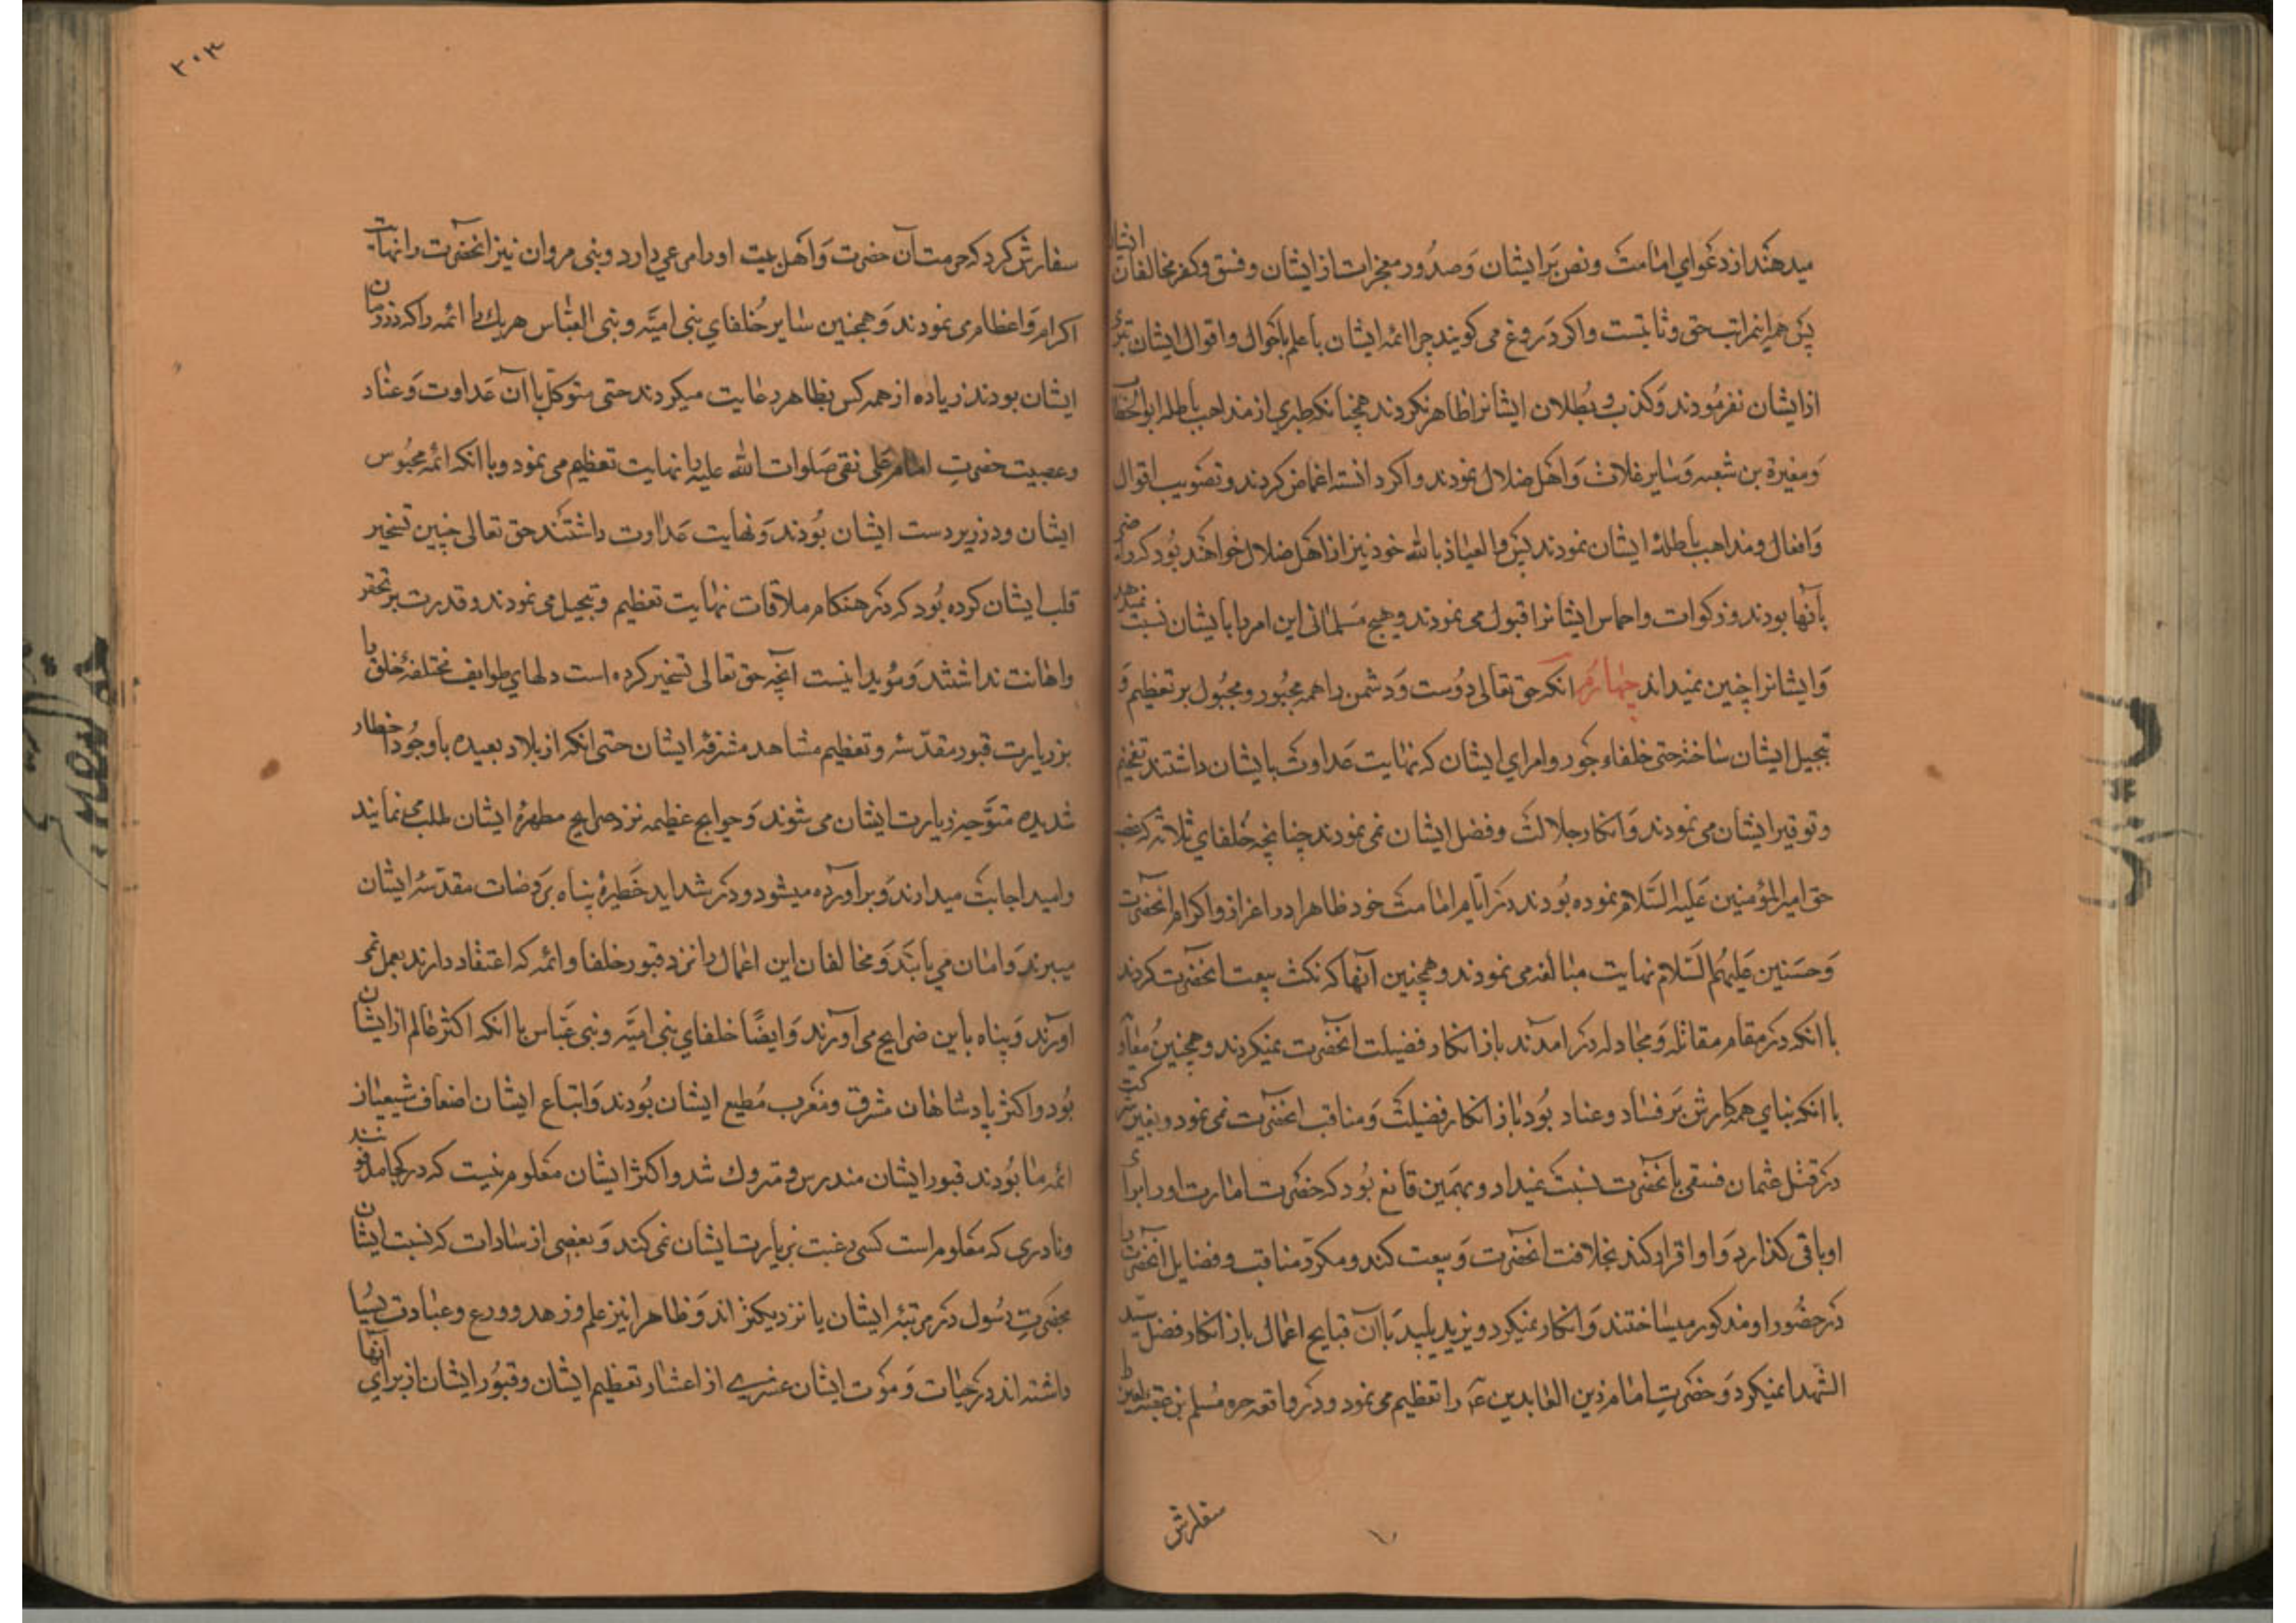 میدهند از دعوای امامت و نص بر ایشان و صدور معجزات از ایشان و فسق و کفر مخالفان ایشان
پس همه اینمراتب حق و ثابتست و اکر دروغ می کویند چرا ائمه ایشان با علم باحوال و اقوال ایشان تبری
از ایشان نفرمودند و کذب و بطلان ایشانرا ظاهر نکردند همچنانکه طبری از مذاهب باطله ابوالخطاب
و مغیرة بن شعبه و سایر غلات و اهل ضلال نمودند و اکر دانسته اغماض کردند و تصویب اقوال
و افعال و مذاهب باطلهٔ ایشان نمودند پس والعیاذ بالله خود نیز از اهل ضلال خواهند بود که راضی
بآنها بودند و زکوات و اخماس ایشانرا قبول می نمودند و هیچ مسلمانی این امر را بایشان نسبت نمیدهد
و ایشانرا چنین نمیداند چهارم انکه حق تعالی دوست و دشمن را همه مجبور و مجبول بر تعظیم و
تبجیل ایشان ساخته حتی خلفاء جور و امرای ایشان که نهایت عداوت بایشان داشتند تفخیم
و توقیر ایشان می نمودند و انکار جلالت و فضل ایشان نمی نمودند چنانچه خلفای ثلاثه که غصب
حق امیرالمؤمنین علیه السلام نموده بودند در ایام امامت خود ظاهرا در اعزاز و اکرام انحضرت
و حسنین علیهم السلام نهایت مبالغه می نمودند و همچنین آنها که نکث بیعت انحضرت کردند
با انکه در مقام مقاتله و مجادله در امدند باز انکار فضیلت انحضرت نمیکردند و همچنین معاویه
با انکه بنای همه کارش بر فساد و عناد بود باز انکار فضیلت و مناقب انحضرت نمی نمود و بغیر شرکت
در قتل عثمان فسقی بانحضرت نسبت نمیداد و بهمین قانع بود که حضرت امارت او را برای
او باقی کذارد و او اقرار کند بخلافت انحضرت و بیعت کند و مکرر مناقب و فضایل انحضرت را
در حضور او مذکور میساختند و انکار نمیکرد و یزید پلید با آن قبایح اعمال باز انکار فضل سید
الشهدا نمیکرد و حضرت امام زین العابدین عه را تعظیم می نمود و در واقعه حره مسلم بن عقبه لعین را
سفارش
۳۰۳
سفارش کرد که حرمت آن حضرت و اهل بیت او را مرعی دارد و بنی مروان نیز انحضرت را نهایت
اکرام و اعظام می نمودند و همچنین سایر خلفای بنی امیه و بنی العباس هریك را ائمه را که در زمان
ایشان بودند زیاده از همه کس بظاهر رعایت میکردند حتی متوکل با آن عداوت و عناد
و عصبیت حضرت امام علی نقی صلوات الله علیه را نهایت تعظیم می نمود و با انکه ائمه محبوس
ایشان و در زیر دست ایشان بودند و نهایت عداوت داشتند حق تعالی چنین تسخیر
قلب ایشان کرده بود که در هنکام ملاقات نهایت تعظیم و تبجیل می نمودند و قدرت بر تحقیر
و اهانت نداشتند و مؤید اینست آنچه حق تعالی تسخیر کرده است دلهای طوایف مختلفهٔ خلق را
بزیارت قبور مقدسه و تعظیم مشاهد مشرفهٔ ایشان حتی انکه از بلاد بعیده با وجود اخطار
شدیده متوجه زیارت ایشان می شوند و حوایج عظیمه نزد ضرایح مطهرهٔ ایشان طلب می نمایند
و امید اجابت میدارند و بر آورده میشود و در شداید خطیره پناه بروضات مقدسهٔ ایشان
میبرند و امان می یابند و مخالفان این اعمال را نزد قبور خلفا و ائمه که اعتقاد دارند بعمل نمی
آورند و پناه باین ضرایح می آورند و ایضًا خلفای بنی امیه و بنی عباس با انکه اکثر عالم از ایشان
بود و اکثر پادشاهان مشرق و مغرب مطیع ایشان بودند و اتباع ایشان اضعاف شیعیان
ائمه ما بودند قبور ایشان مندرس و متروك شد و اکثر ایشان معلوم نیست که در کجا مدفونند
و نادری که معلوم است کسی رغبت بزیارت ایشان نمی کند و بعضی از سادات که نسبت ایشان
بحضرت رسول در مرتبهٔ ایشان یا نزدیکتر اند و ظاهرا نیز علم و زهد و ورع و عبادت بسیار
داشته اند در حیات و موت ایشان عشری از اعشار تعظیم ایشان و قبور ایشان از برای آنها